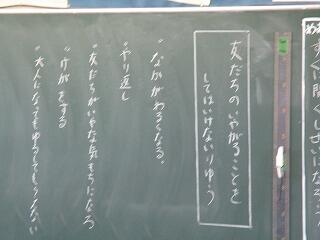 友だちのいやがることを
してはいけないりゆう
・なかがわるくなる。
・やり返し
・友だちがいやな気もちになる
・けがをする
・大人になってもゆるしてもらえない